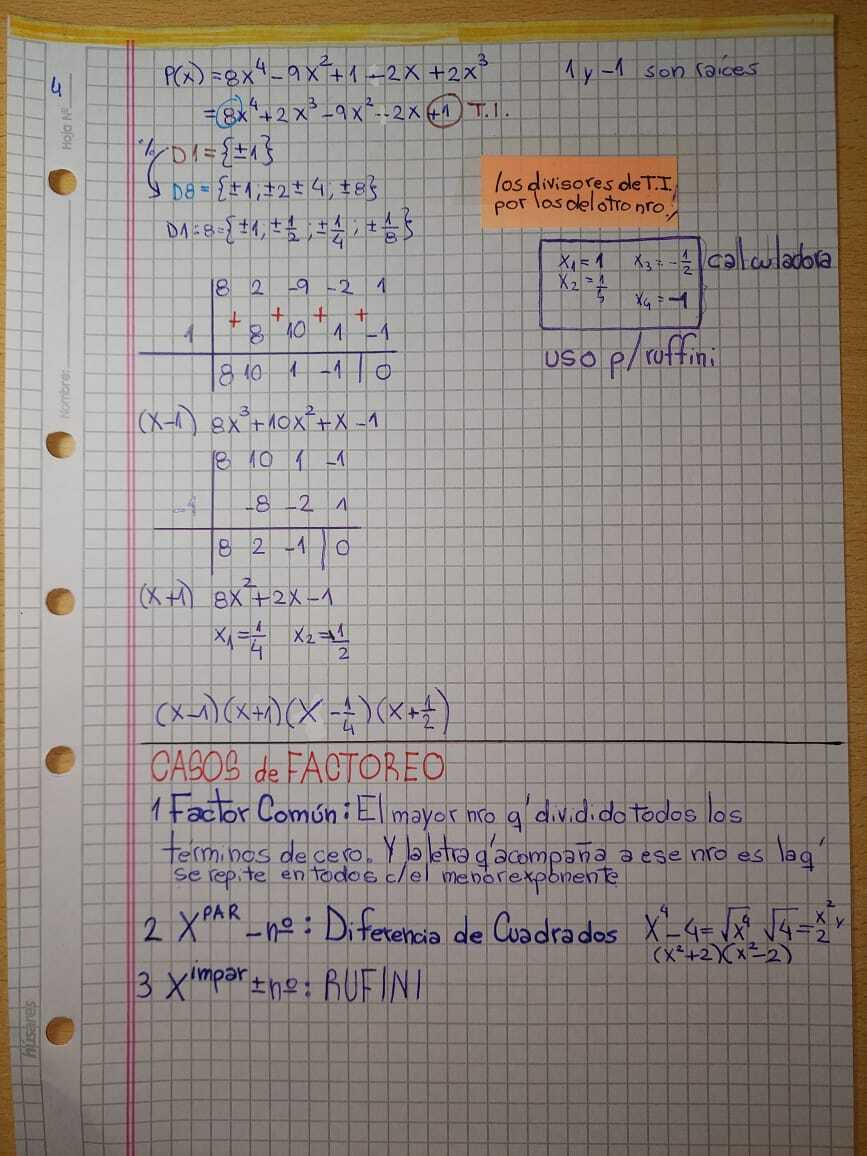 4
Hoja Nº
Nombre:
húsares
P(x) = 8x⁴ - 9x² + 1 - 2x + 2x³
1 y -1 son raíces
= 8x⁴ + 2x³ - 9x² - 2x + 1 T.I.
% D1 = {±1}
D8 = {±1; ±2 ± 4; ±8}
los divisores de T.I.
por los del otro nro!
D1÷8 = {±1, ±1/2; ±1/4; ±1/8}
x₁ = 1 x₃ = -1/2 calculadora
x₂ = 1/5
x₄ = -1
uso p/ruffini
8 2 -9 -2 1
+ + + +
1 8 10 1 -1
8 10 1 -1 | 0
(x-1) 8x³ + 10x² + x - 1
8 10 1 -1
-1 -8 -2 1
8 2 -1 | 0
(x+1) 8x² + 2x - 1
x₁ = 1/4 x₂ = -1/2
(x-1)(x+1)(x - 1/4)(x + 1/2)
CASOS de FACTOREO
1 Factor Común: El mayor nro q' dividido todos los
términos de cero. Y la letra q' acompaña a ese nro es la q'
se repite en todos c/el menor exponente
2 X^PAR - nº: Diferencia de Cuadrados x⁴ - 4 = √x⁴ √4 = x² y 2
(x²+2)(x²-2)
3 X^impar ± nº: RUFINI